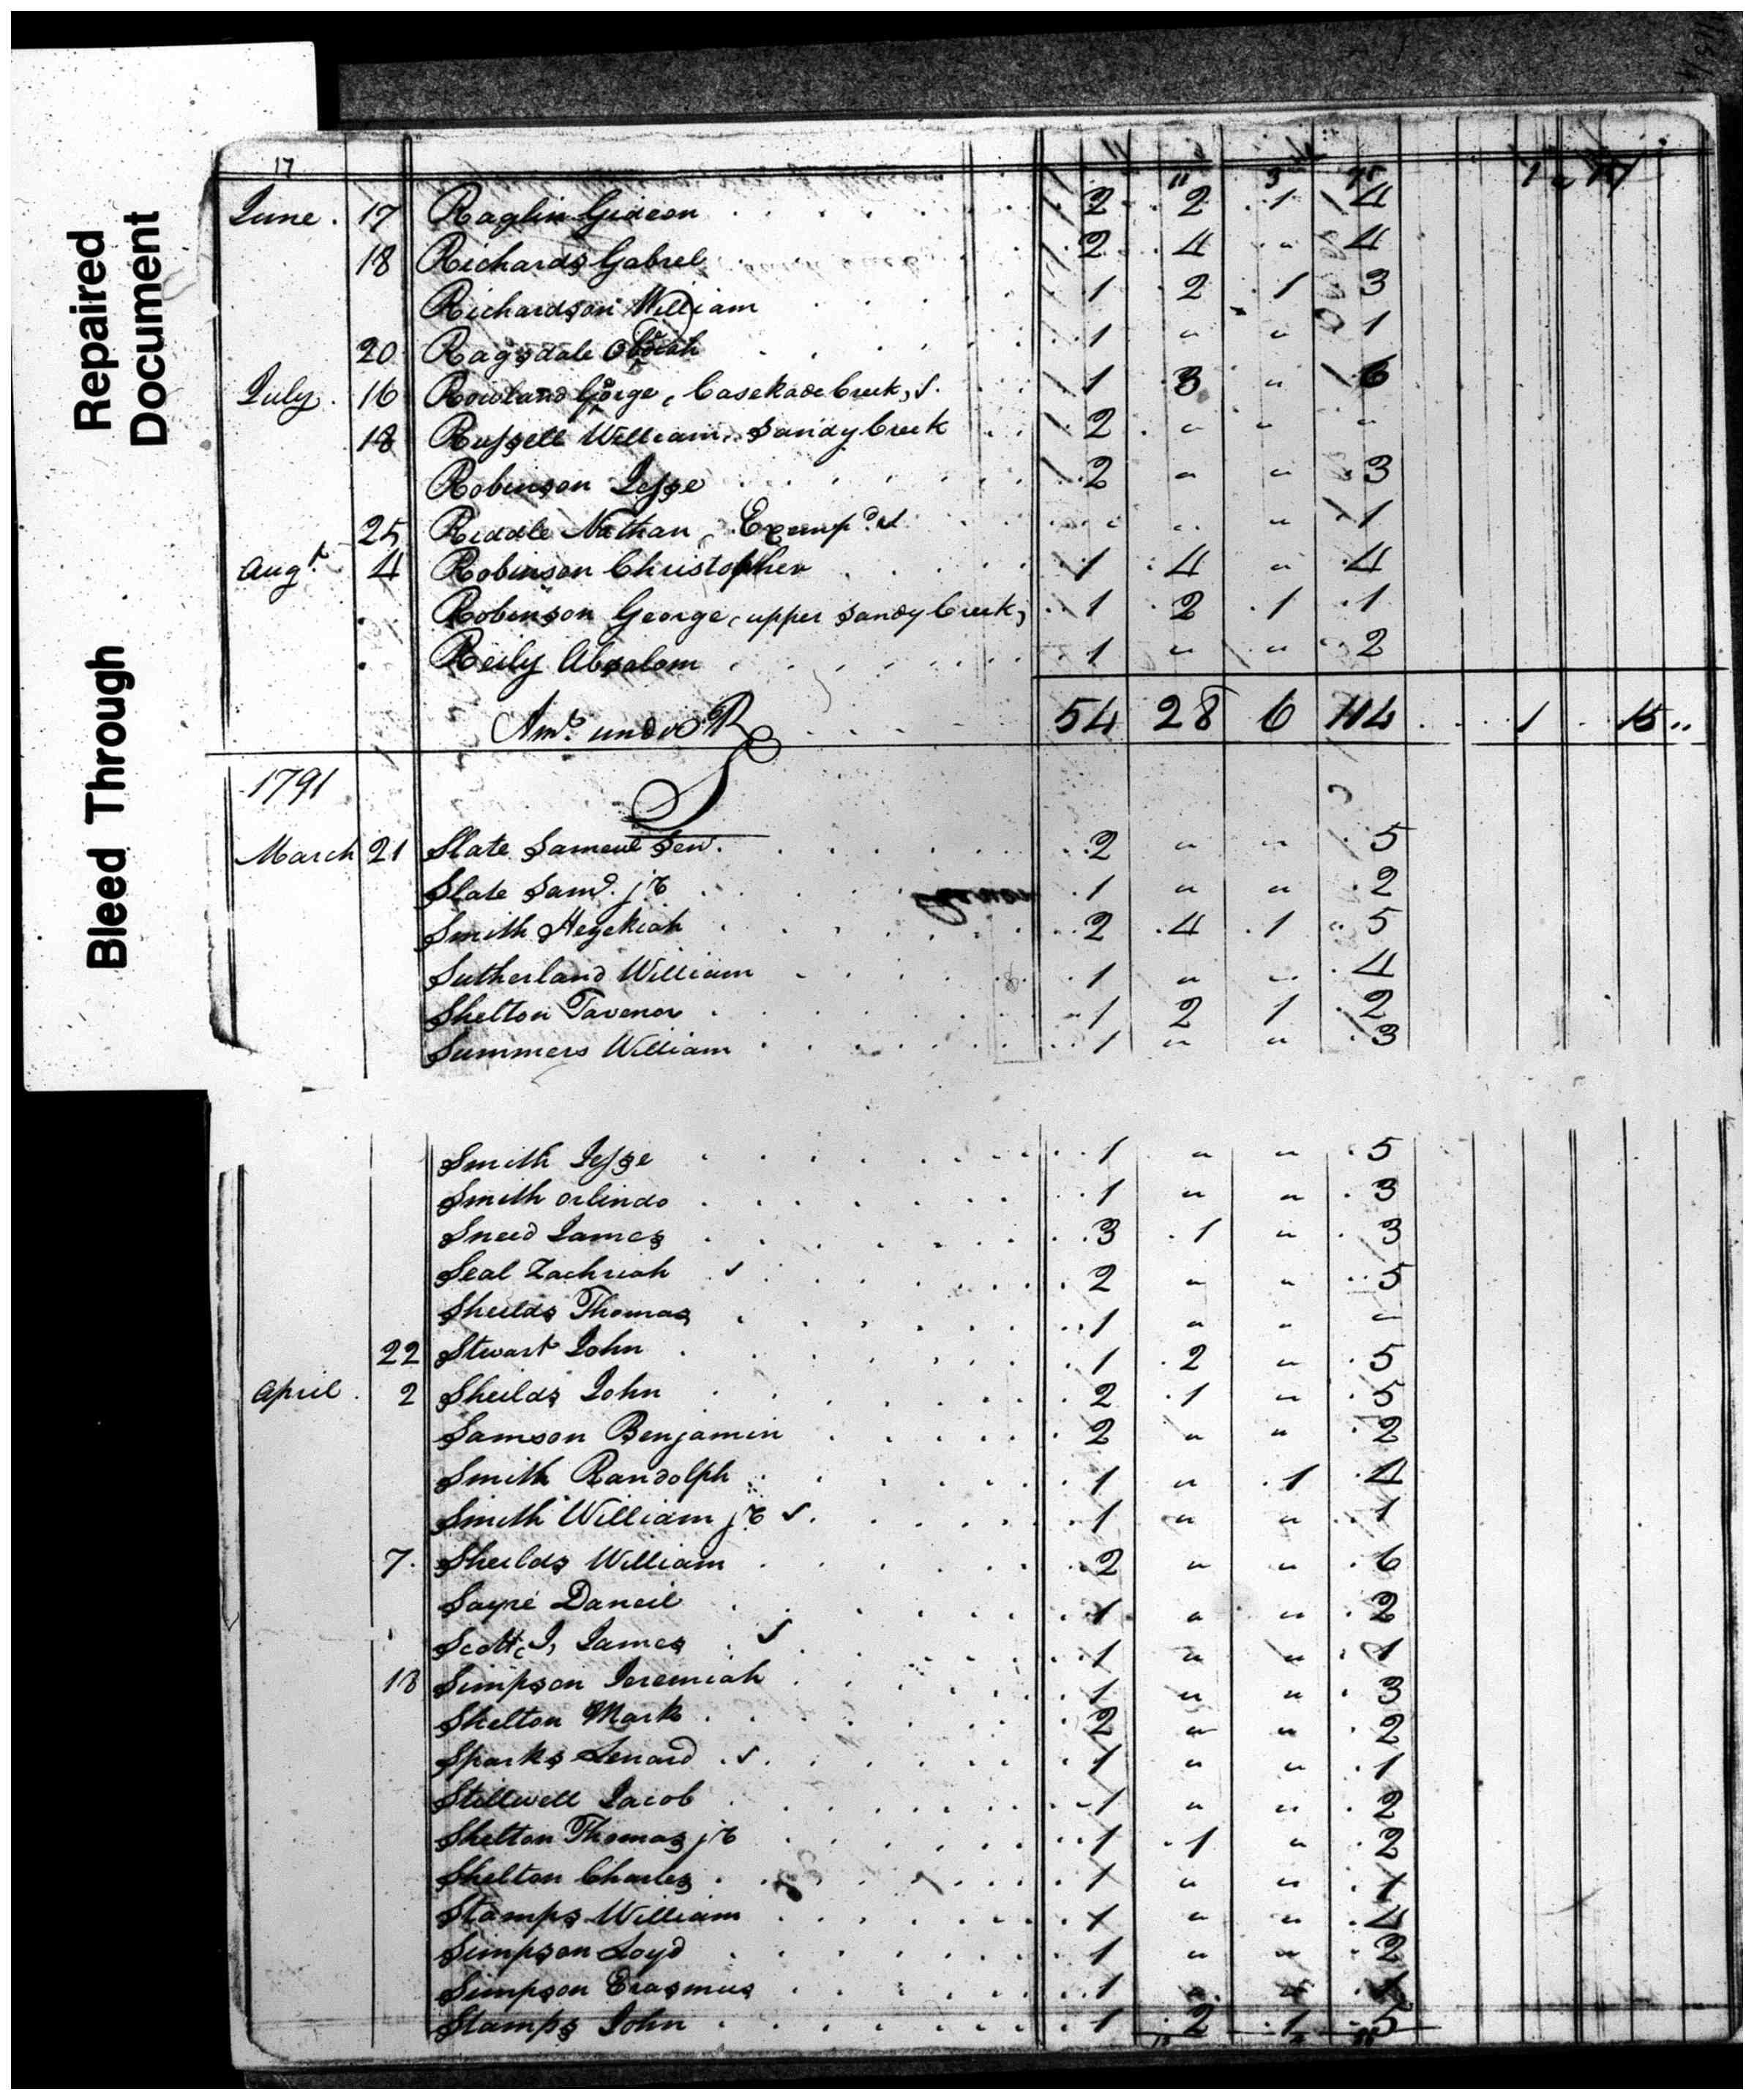 Repaired Document
Bleed Through
17
11 3 75 1 " 17
June . 17 Raglin Gideon 2 2 1 4
18 Richards Gabrel 2 4 " 4
Richardson William 1 2 1 3
20 Ragsdale Obediah 1 " " 1
July . 16 Rowland George, Casekade Creek, S. 1 3 " 6
18 Russell William, Sandy Creek 2 " " "
Robinson Jesse 2 " " 3
25 Riddle Nathan, Exemp.d S " " " 1
Augt. 4 Robinson Christopher 1 4 " 4
Robinson George, upper Sandy Creek, 1 2 1 1
Reily Absalom 1 " " 2
Amt. under R 54 28 6 114 1 15 "
1791 S
March 21 Slate Samuel Sen. 2 " " 5
Slate Saml. jr 1 " " 2
Smith Hezekiah 2 4 1 5
Sutherland William 1 " " 4
Shelton Tavenor 1 2 1 2
Summers William 1 " " 3
Smith Jesse 1 " " 5
Smith orlindo 1 " " 3
Sneed James 3 1 " 3
Seal Zachriah S 2 " " 5
Sheilds Thomas 1 " " "
22 Stewart John 1 2 " 5
April . 2 Sheilds John 2 1 " 5
Samson Benjamin 2 " " 2
Smith Randolph 1 " 1 4
Smith William jr S 1 " " 1
7. Sheilds William 2 " " 6
Sayre Daneil 1 " " 2
Scott, J, James S 1 " " 1
18 Simpson Jeremiah 1 " " 3
Shelton Mark 2 " " 2
Sparks Lenard S 1 " " 1
Stillwell Jacob 1 " " 2
Shelton Thomas jr 1 1 " 2
Shelton Charles 1 " " 1
Stamps William 1 " " 4
Simpson Loyd 1 " " 2
Simpson Erasmus 1 " " 1
Stamps John 1 2 1 5